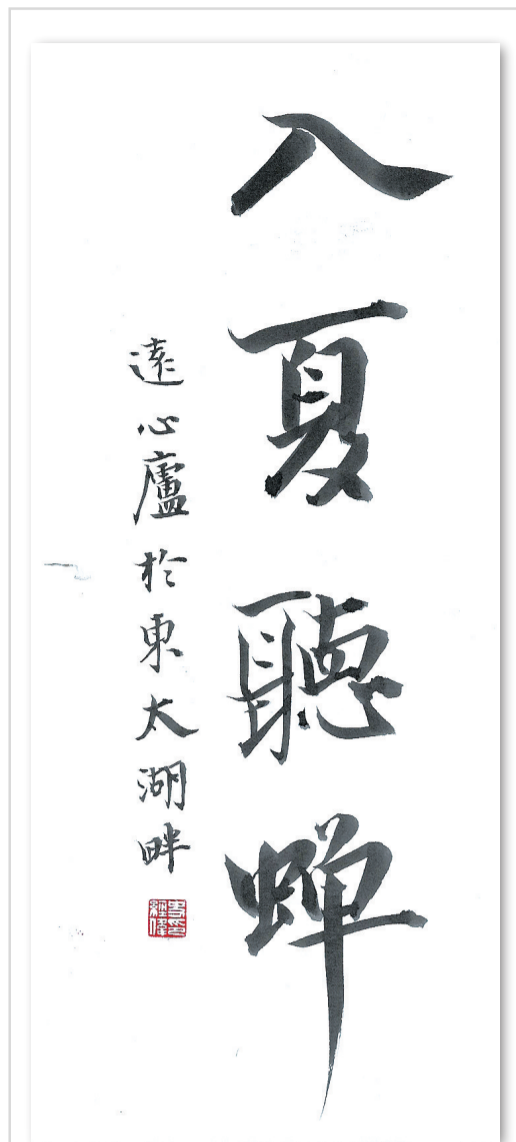 入夏聽蟬
遠心廬於東太湖畔